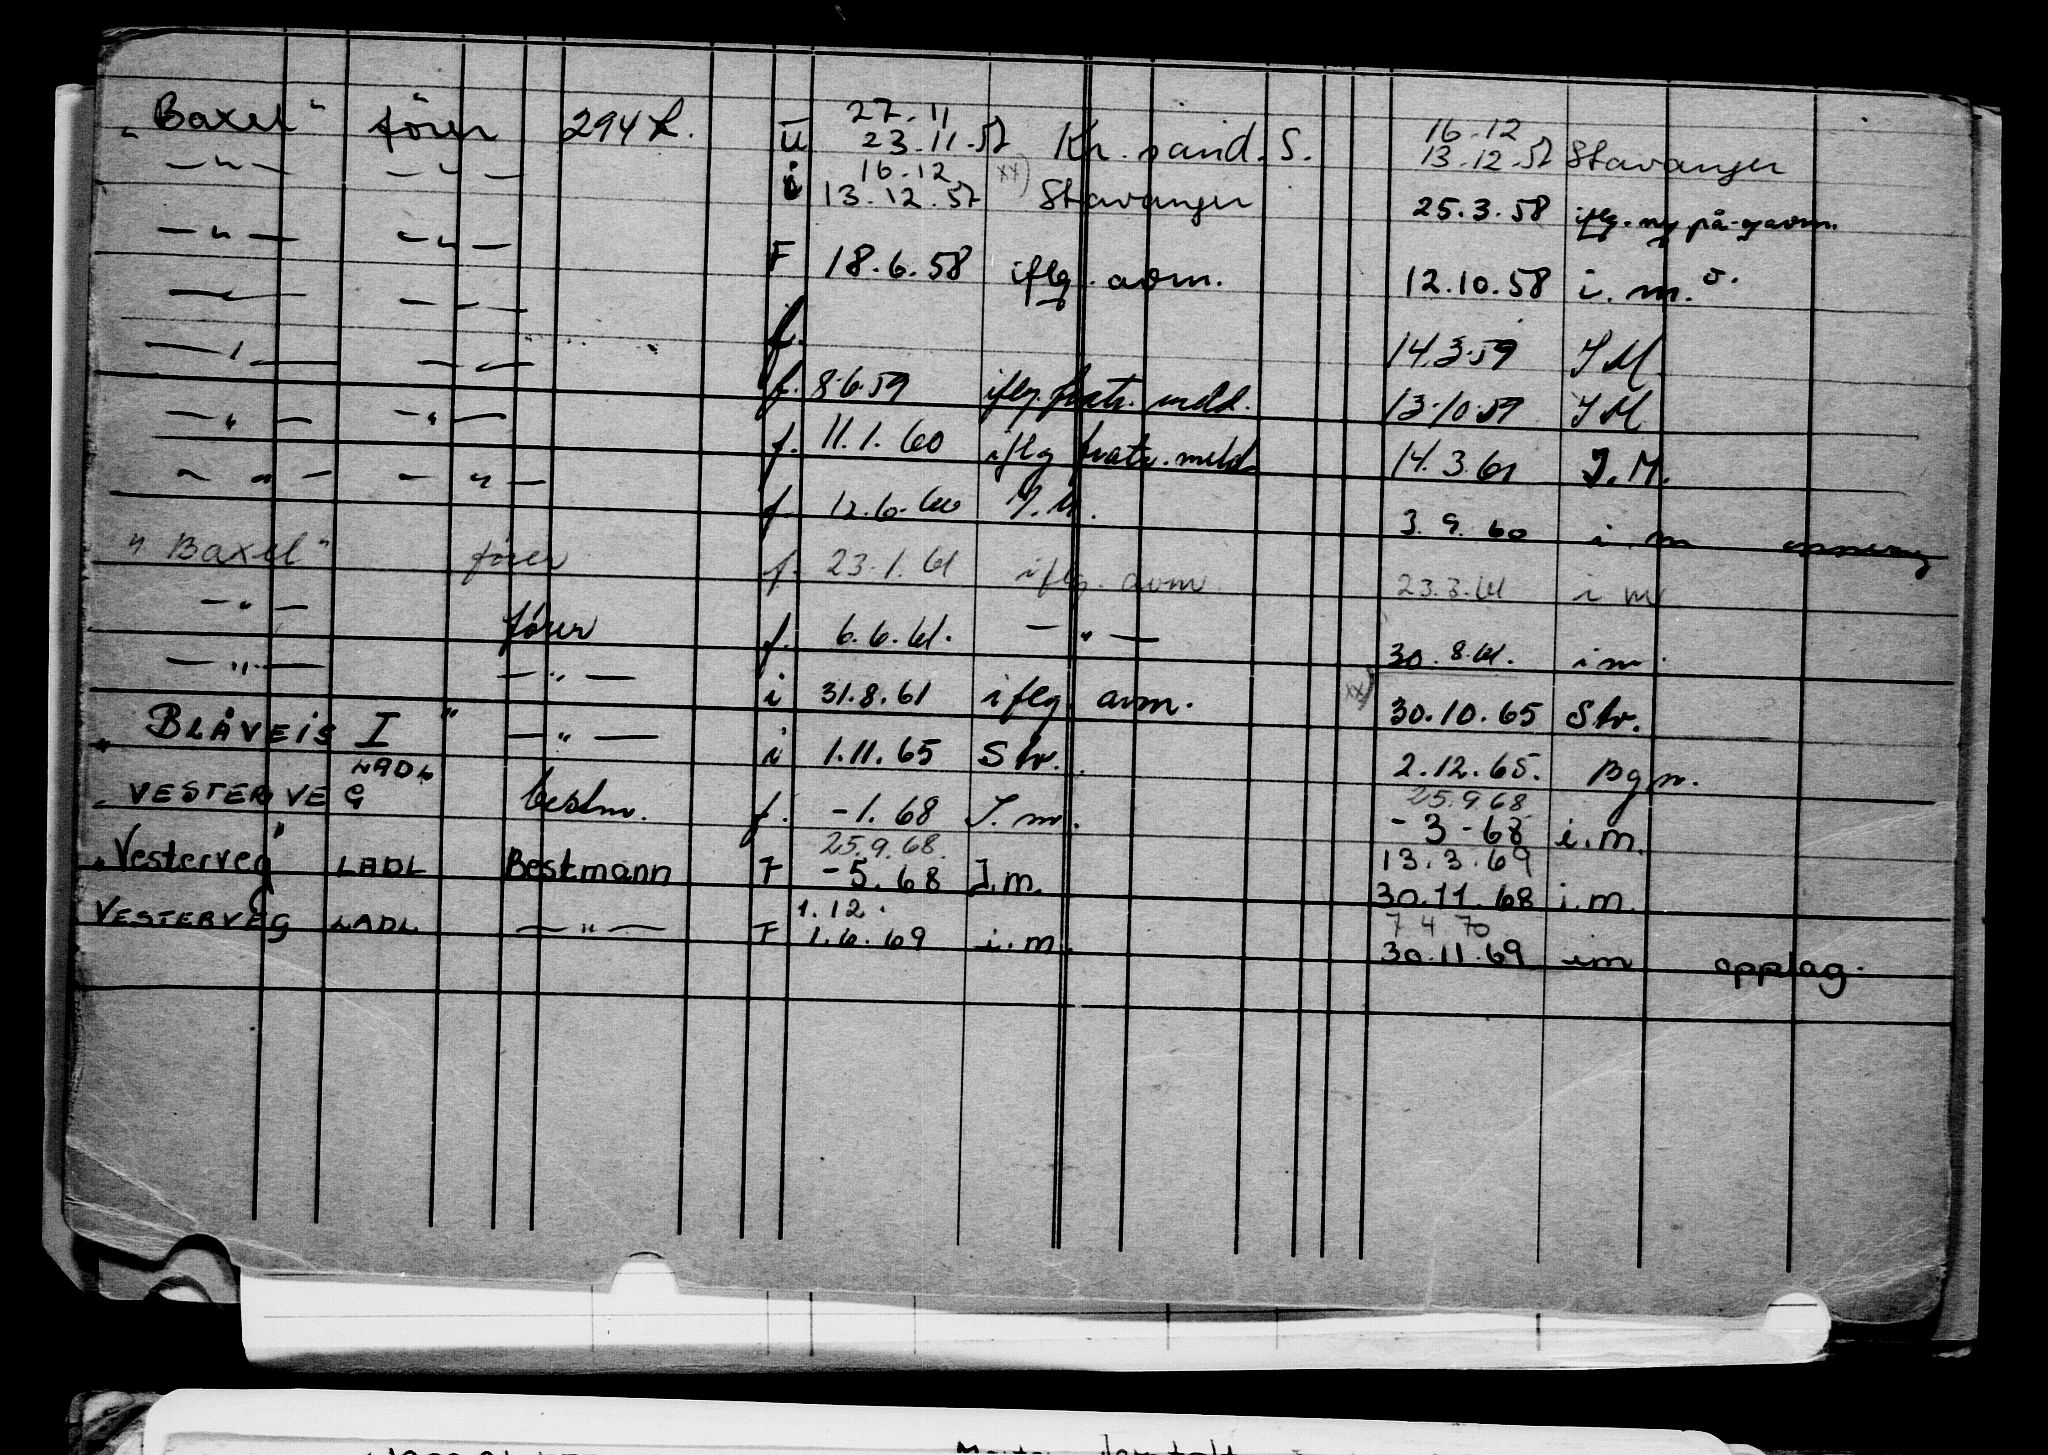 "Baxel" fører 294 ū 27.11 23.11.57 Kr.sand. S. 16.12 13.12.57 Stavanger
—"— —"— i 16.12 13.12.57 xx) Stavanger 25.3.58 iflg. ny på-gavm.
—"— —"— F 18.6.58 iflg. avm. 12.10.58 i. m.
—"— —"— f. 14.3.59 I M
—"— —"— f. 8.6.59 iflg. fratr. meld. 13.10.59 I M
—"— —"— f. 11.1.60 iflg fratr. meld. 14.3.60 I.M.
—"— —"— f. 12.6.60 I.M. 3.9.60 i m
"Baxel" fører f. 23.1.61 iflg. avm 23.3.61 i m
—"— fører f. 6.6.61. —"— 30.8.61. i m.
—"— —"— i 31.8.61 iflg. avm. xx) 30.10.65 Str.
"BLÅVEIS I" —"— i 1.11.65 Str. 2.12.65. Bgn.
"VESTERVEG LADL bestm. f. -1.68 I.m. 25.9.68 -3-68 i.m.
"Vesterveg" LADL Bestmann F 25.9.68. -5.68 I.m. 13.3.69 30.11.68 i.m.
VESTERVEG LADL —"— F 1.12. 1.6.69 i.m. 7 4 70 30.11.69 im opplag.